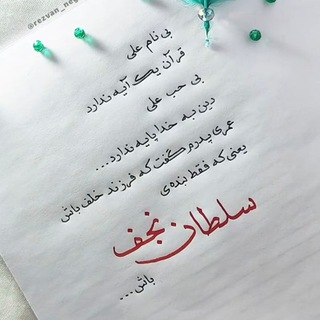 @rezvan_neg
بی نام علی
قرآن یک آیه ندارد
بی حب علی
دین به خدا پایه ندارد...
عمری پدرم گفت که فرزند خلف باش
یعنی که فقط بنده‌ی
سلطان نجف
باش...